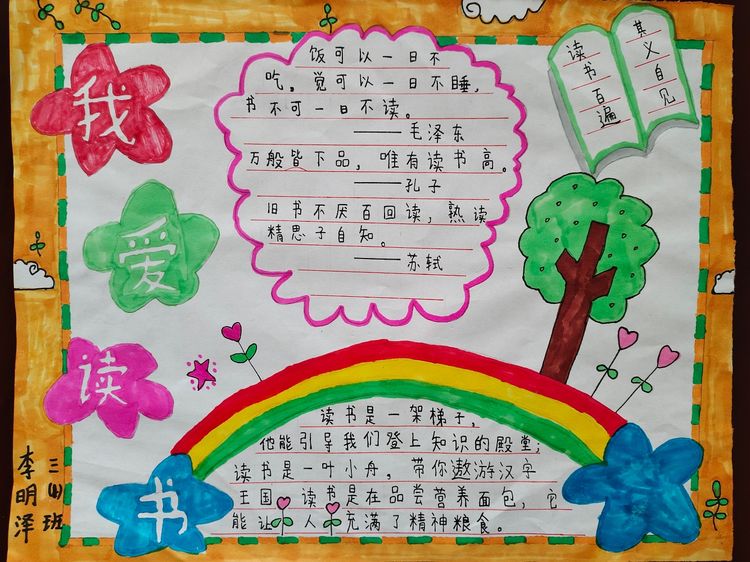 我
爱
读
书
饭可以一日不
吃。觉可以一日不睡,
书不可一日不读。
——毛泽东
万般皆下品,唯有读书高。
——孔子
旧书不厌百回读,熟读
精思子自知。
——苏轼
读书百遍
其义自见
读书是一架梯子,
他能引导我们登上知识的殿堂;
读书是一叶小舟,带你遨游汉字
王国。读书是在品尝营养面包,它
能让人充满了精神粮食。
三(4)班
李明泽